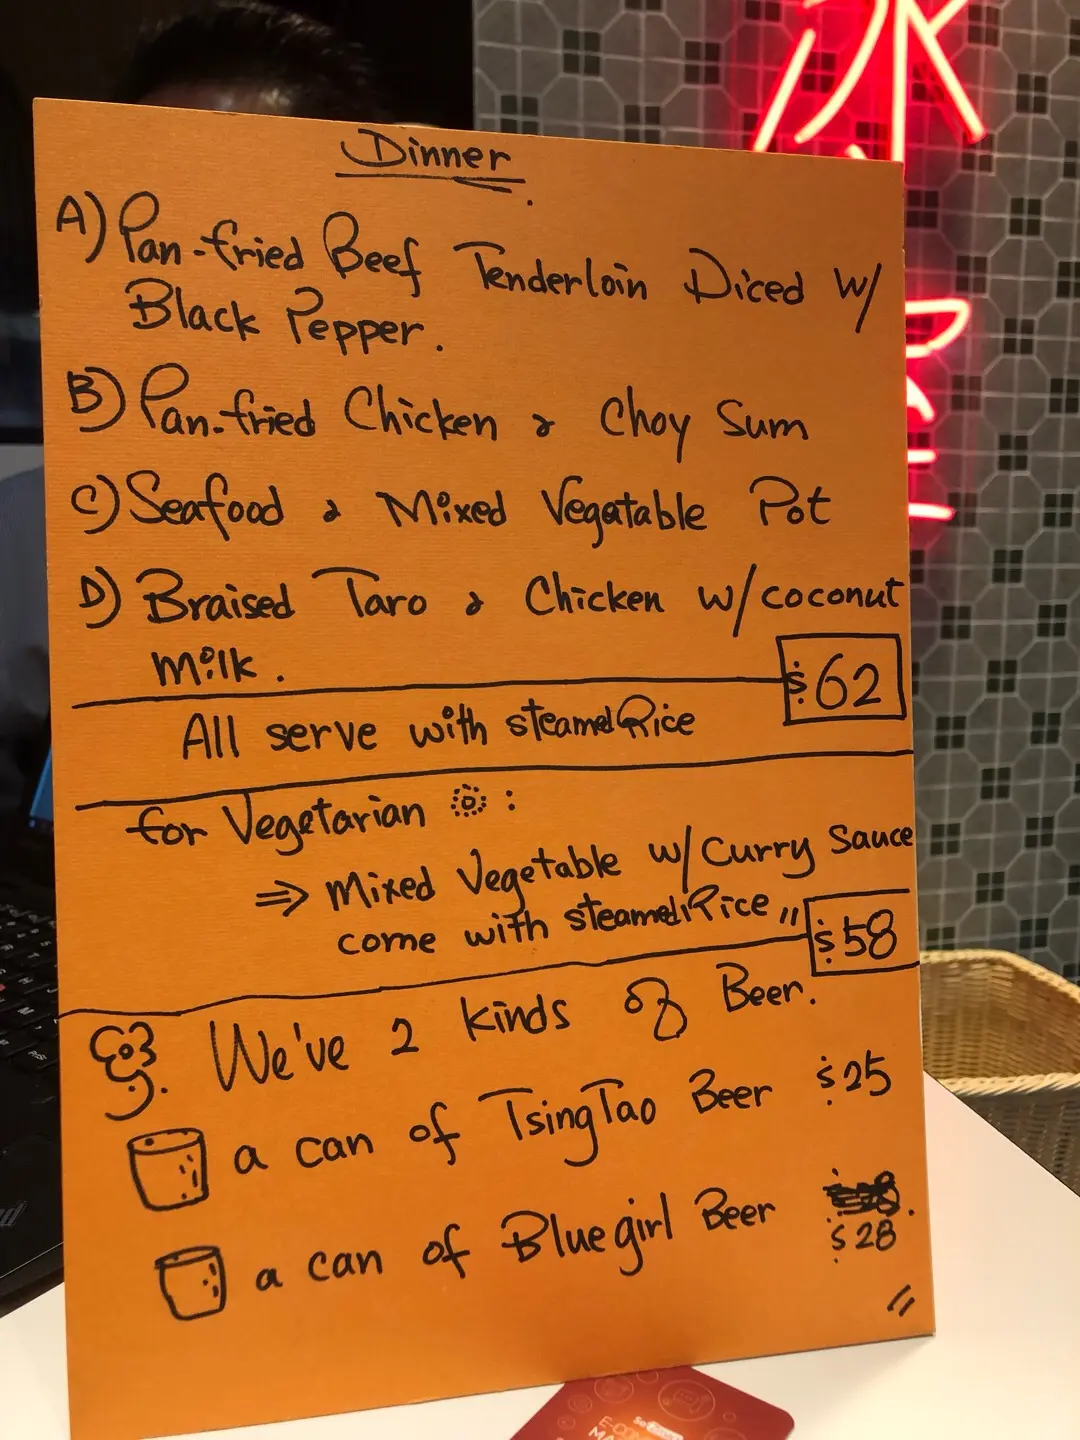 Dinner
A) Pan-fried Beef Tenderloin Diced w/
Black Pepper.
B) Pan-fried Chicken & Choy Sum
C) Seafood & Mixed Vegatable Pot
D) Braised Taro & Chicken w/ coconut
milk.
$62
All serve with steamed Rice
for Vegetarian :
⇒ Mixed Vegetable w/ Curry Sauce
come with steamed Rice "
$58
We've 2 kinds of Beer.
a can of TsingTao Beer $25
a can of Blue girl Beer
$28
冰